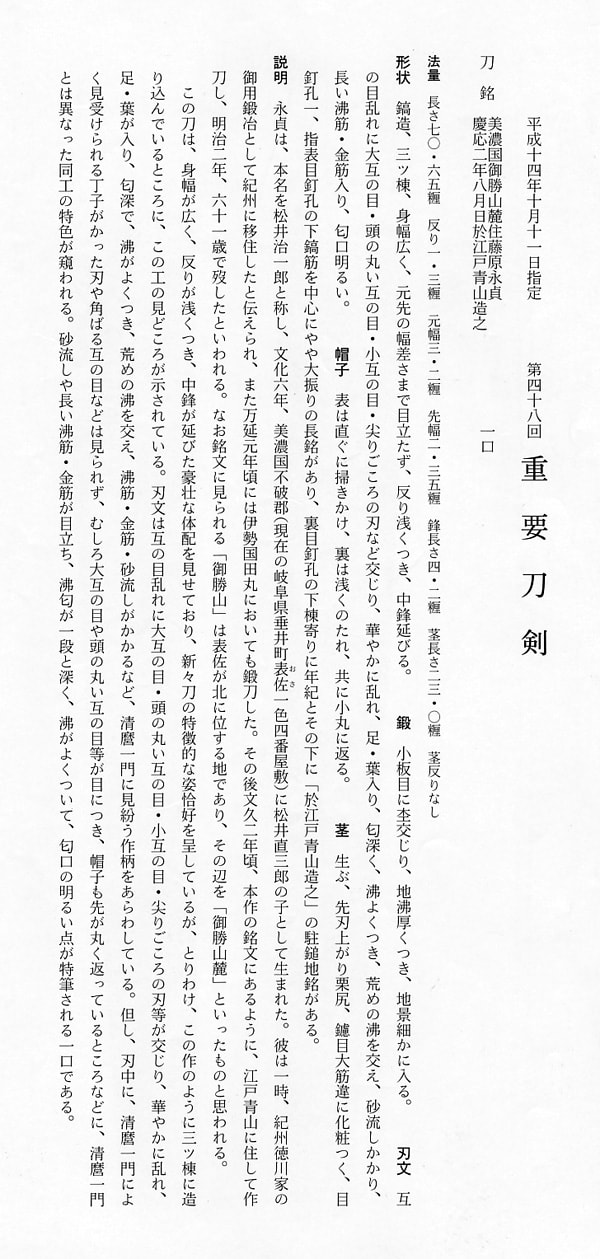 平成十四年十月十一日指定　第四十八回　重要刀剣
刀　銘　美濃国御勝山麓住藤原永貞
慶応二年八月日於江戸青山造之　一口
法量　長さ七〇・六五糎　反り一・三糎　元幅三・二糎　先幅二・三五糎　鋒長さ四・二糎　茎長さ二三・〇糎　茎反りなし
形状　鎬造、三ツ棟、身幅広く、元先の幅差さまで目立たず、反り浅くつき、中鋒延びる。　鍛　小板目に杢交じり、地沸厚くつき、地景細かに入る。　刃文　互
の目乱れに大互の目・頭の丸い互の目・小互の目・尖りごころの刃など交じり、華やかに乱れ、足・葉入り、匂深く、沸よくつき、荒めの沸を交え、砂流しかかり、
長い沸筋・金筋入り、匂口明るい。　帽子　表は直ぐに掃きかけ、裏は浅くのたれ、共に小丸に返る。　茎　生ぶ、先刃上がり栗尻、鑢目大筋違に化粧つく、目
釘孔一、指表目釘孔の下鎬筋を中心にやや大振りの長銘があり、裏目釘孔の下棟寄りに年紀とその下に「於江戸青山造之」の駐鎚地銘がある。
説明　永貞は、本名を松井治一郎と称し、文化六年、美濃国不破郡（現在の岐阜県垂井町表佐おさ一色四番屋敷）に松井直三郎の子として生まれた。彼は一時、紀州徳川家の
御用鍛冶として紀州に移住したと伝えられ、また万延元年頃には伊勢国田丸においても鍛刀した。その後文久二年頃、本作の銘文にあるように、江戸青山に住して作
刀し、明治二年、六十一歳で歿したといわれる。なお銘文に見られる「御勝山」は表佐が北に位する地であり、その辺を「御勝山麓」といったものと思われる。
この刀は、身幅が広く、反りが浅くつき、中鋒が延びた豪壮な体配を見せており、新々刀の特徴的な姿恰好を呈しているが、とりわけ、この作のように三ツ棟に造
り込んでいるところに、この工の見どころが示されている。刃文は互の目乱れに大互の目・頭の丸い互の目・小互の目・尖りごころの刃等が交じり、華やかに乱れ、
足・葉が入り、匂深で、沸がよくつき、荒めの沸を交え、沸筋・金筋・砂流しがかかるなど、清麿一門に見紛う作柄をあらわしている。但し、刃中に、清麿一門によ
く見受けられる丁子がかった刃や角ばる互の目などは見られず、むしろ大互の目や頭の丸い互の目等が目につき、帽子も先が丸く返っているところなどに、清麿一門
とは異なった同工の特色が窺われる。砂流しや長い沸筋・金筋が目立ち、沸匂が一段と深く、沸がよくついて、匂口の明るい点が特筆される一口である。